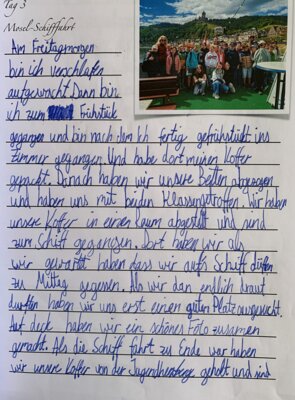 Tag 3
Mosel-Schifffahrt
Am Freitagmorgen
bin ich verschlafen
aufgewacht. Dann bin
ich zum Frühstück
gegangen und bin nach dem Ich fertig gefrühstückt ins
Zimmer gegangen. Und habe dort meinen Koffer
gepackt. Danach haben wir unsere Betten abgezogen
und haben uns mit beiden Klassen getroffen. Wir haben
unsere Koffer in einen Raum abgestellt und sind
zum Schiff gegangen. Dort haben wir als
wir gewartet haben dass wir aufs Schiff düften
zu Mittag gegessen. Als wir dan endlich drauf
durften haben wir uns erst einen guten Platz ausgesucht.
Auf deck haben wir ein schönes Foto zusammen
gemacht. Als die Schiff fahrt zu Ende war haben
wir unsere Koffer von der Jugendherberge geholt und sind